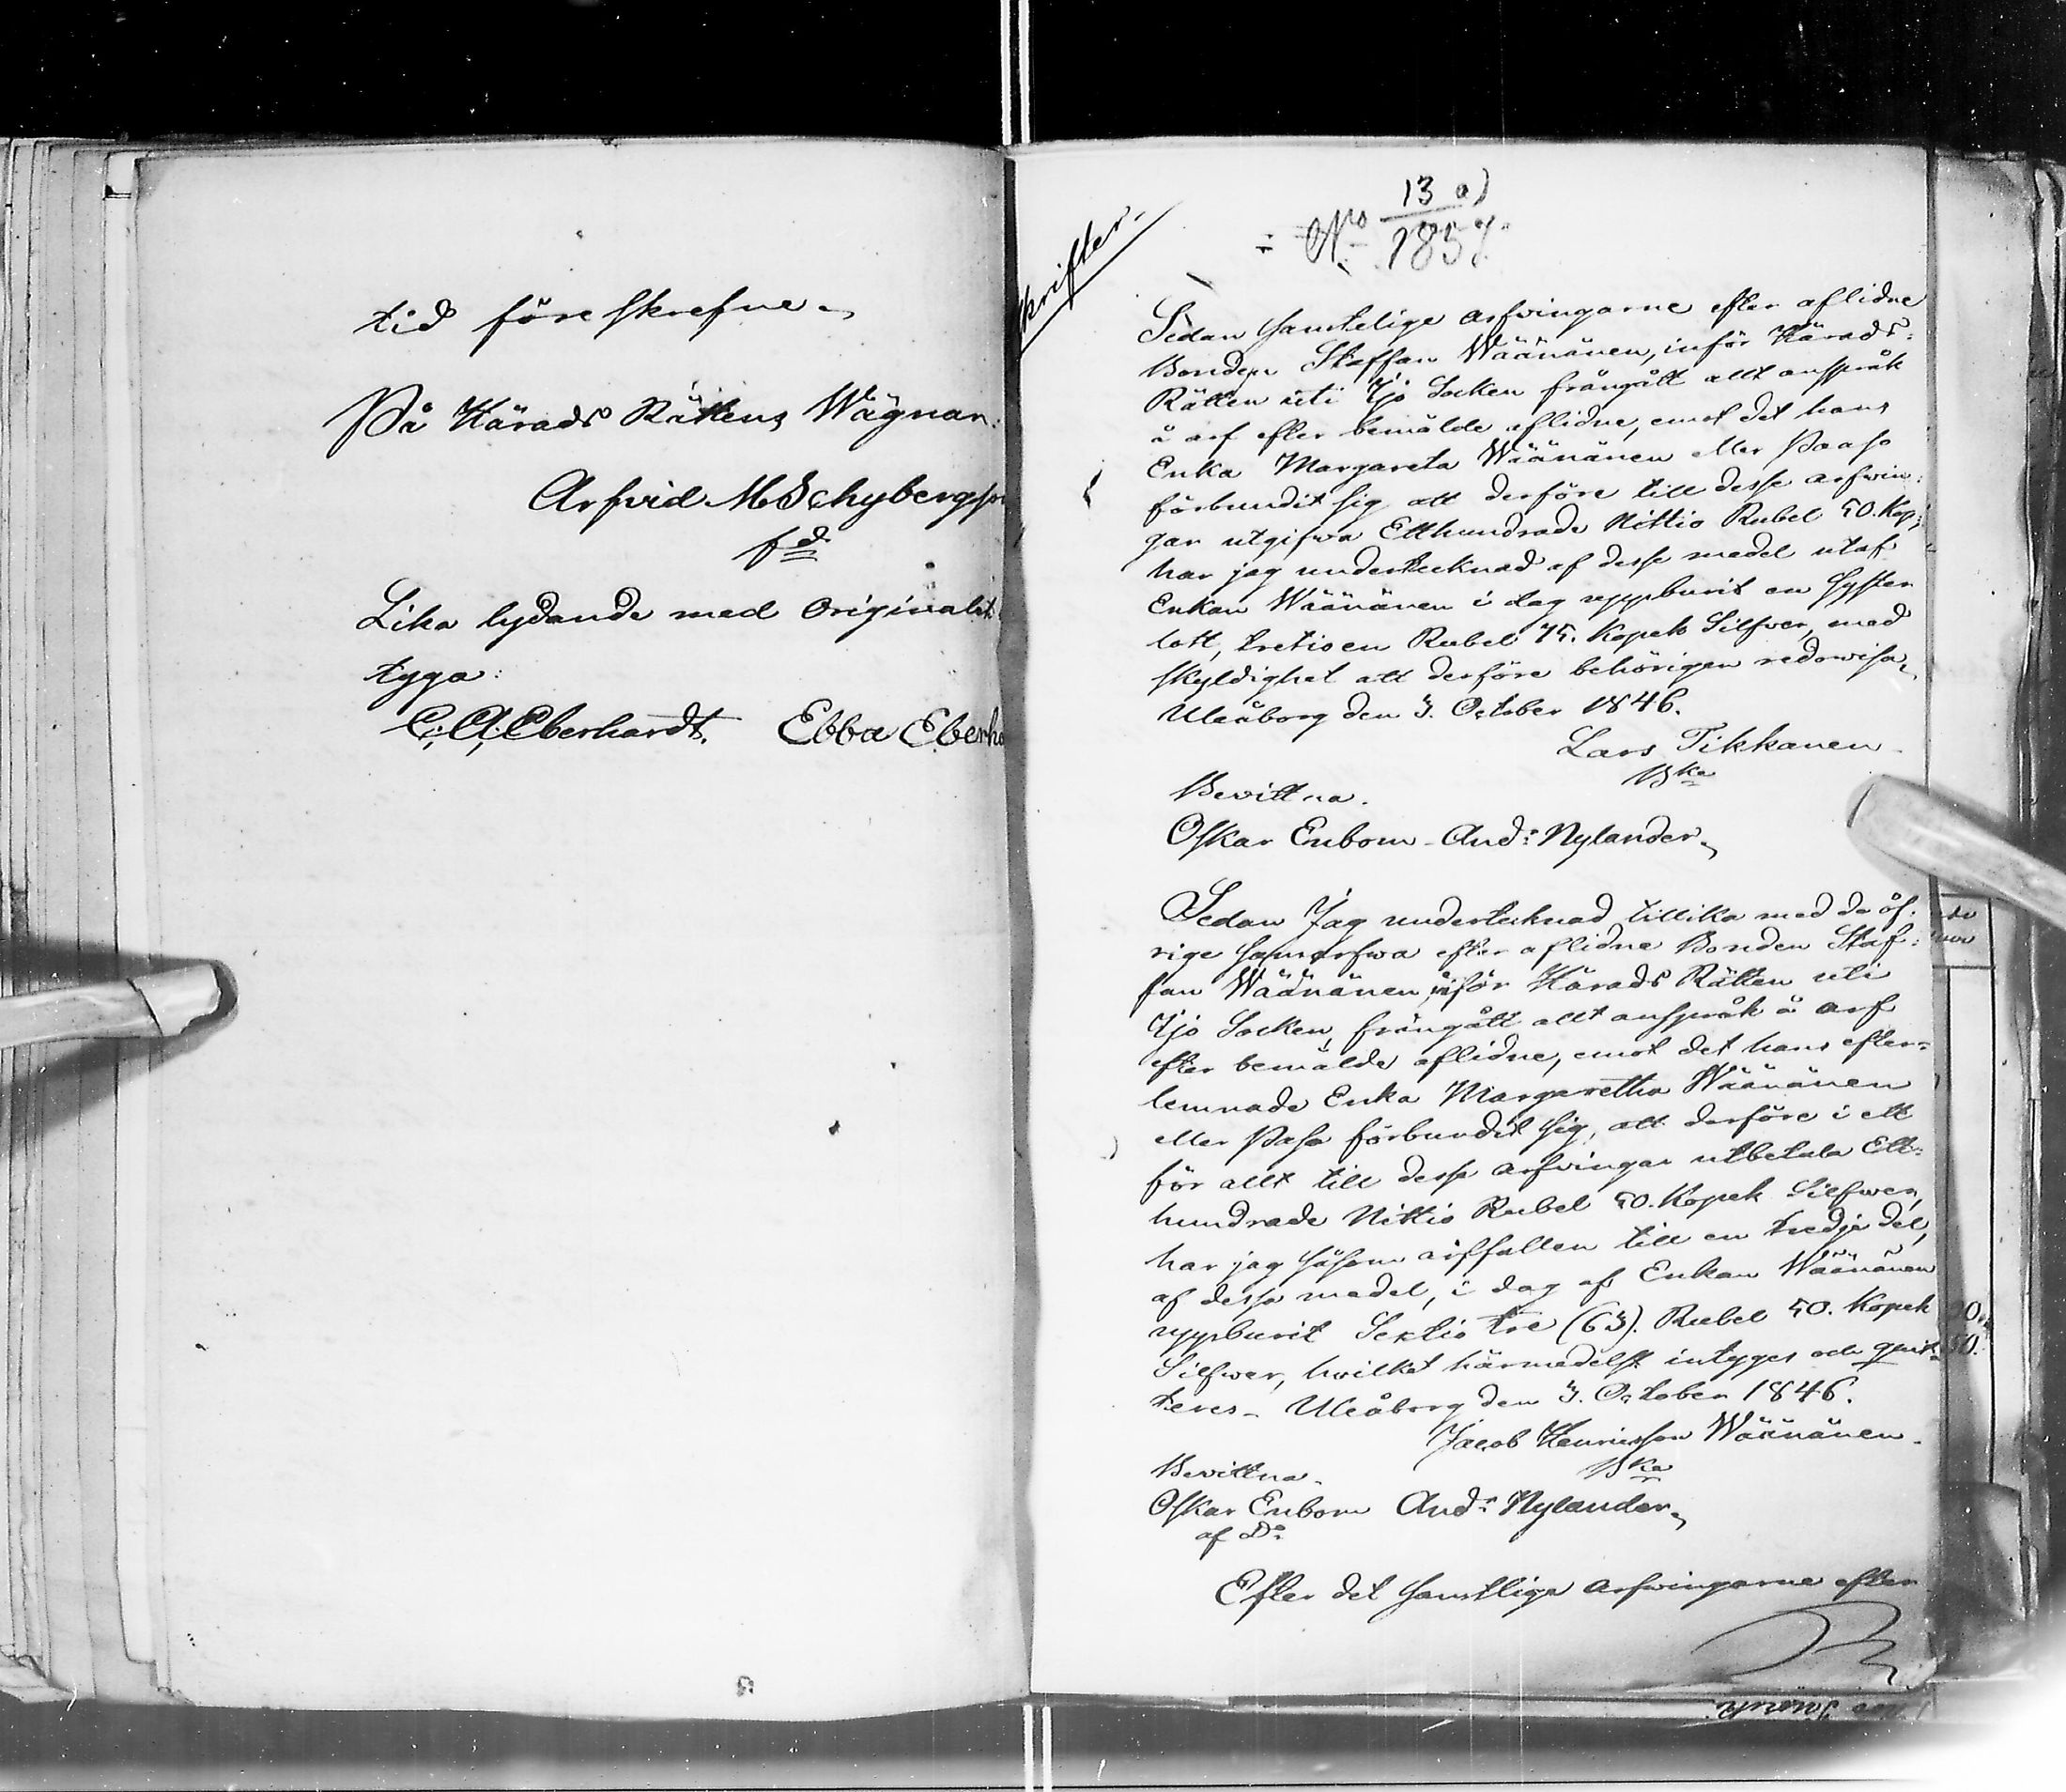 tid föreskrefne.
På Härads Rättens Wägnar:
Arfvid M Schybergson
fd
Lika lydande med Originalet
tyga:
C. A. Eberhardt. Ebba Eberha
skrifter.
No 13 a)
1857.
Sedan samtelige arfvingarne efter aflidne
Bonden Staffan Wäänänen, inför Härads-
Rätten uti Ijo Socken frångått allt anspråk
å arf efter bemälde aflidne, emot det hans
Enka Margareta Wäänänen eller Paaso
förbundit sig att derföre till desse arfwin-
gar utgifwa Etthundrade Nittio Rubel 50. Kop;
har jag undertecknad af desse medel utaf
Enkan Wäänänen i dag uppburit en Syster
lott, tretioen Rubel 75. Kopek Silfwer, med
skyldighet att derföre behörigen redowisa,
Uleåborg den 3. October 1846.
Lars Tikkanen
Bke
Bevittna.
Oskar Enbom - And: Nylander,
Sedan Jag undertecknad tillika med de öf-
rige samarfwa efter aflidne Bonden Staf-
fan Wäänänen, inför Härads Rätten uti
Ijo Socken, frångått allt anspråk å arf
efter bemälde aflidne, emot det hans efter-
lemnade Enka Margaretha Wäänänen
eller Paso förbundit sig, att derföre i ett
för allt till desse arfvingar utbetala Ett-
hundrade Nittio Rubel 50. Kopek Silfwer,
har jag såsom arffallen till en tredje del,
af dessa medel, i dag af Enkan Wäänänen
uppburit Sextio tre (63). Rubel 50. Kopek
Silfwer, hvilket härmedelst intyges och quit-
teres. Uleåborg den 3. October 1846.
Jacob Henricsson Wäänänen.
Bka
Bevittna.
Oskar Enbom And: Nylander,
af Do
Efter det samtlige arfwingarne efter